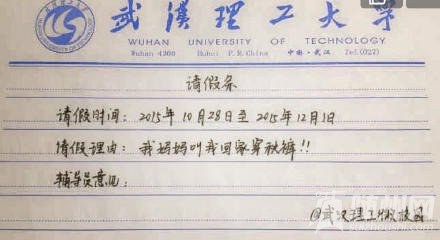 武漢理工大学
WUHAN UNIVERSITY OF TECHNOLOGY
Wuhan 4300 Hubei P.R.China 中国·武汉 Tel.(027)
请假条
请假时间：2015年10月28日至2015年12月1日
请假理由：我妈妈叫我回家穿秋裤!!
辅导员意见：
@武汉理工微校园